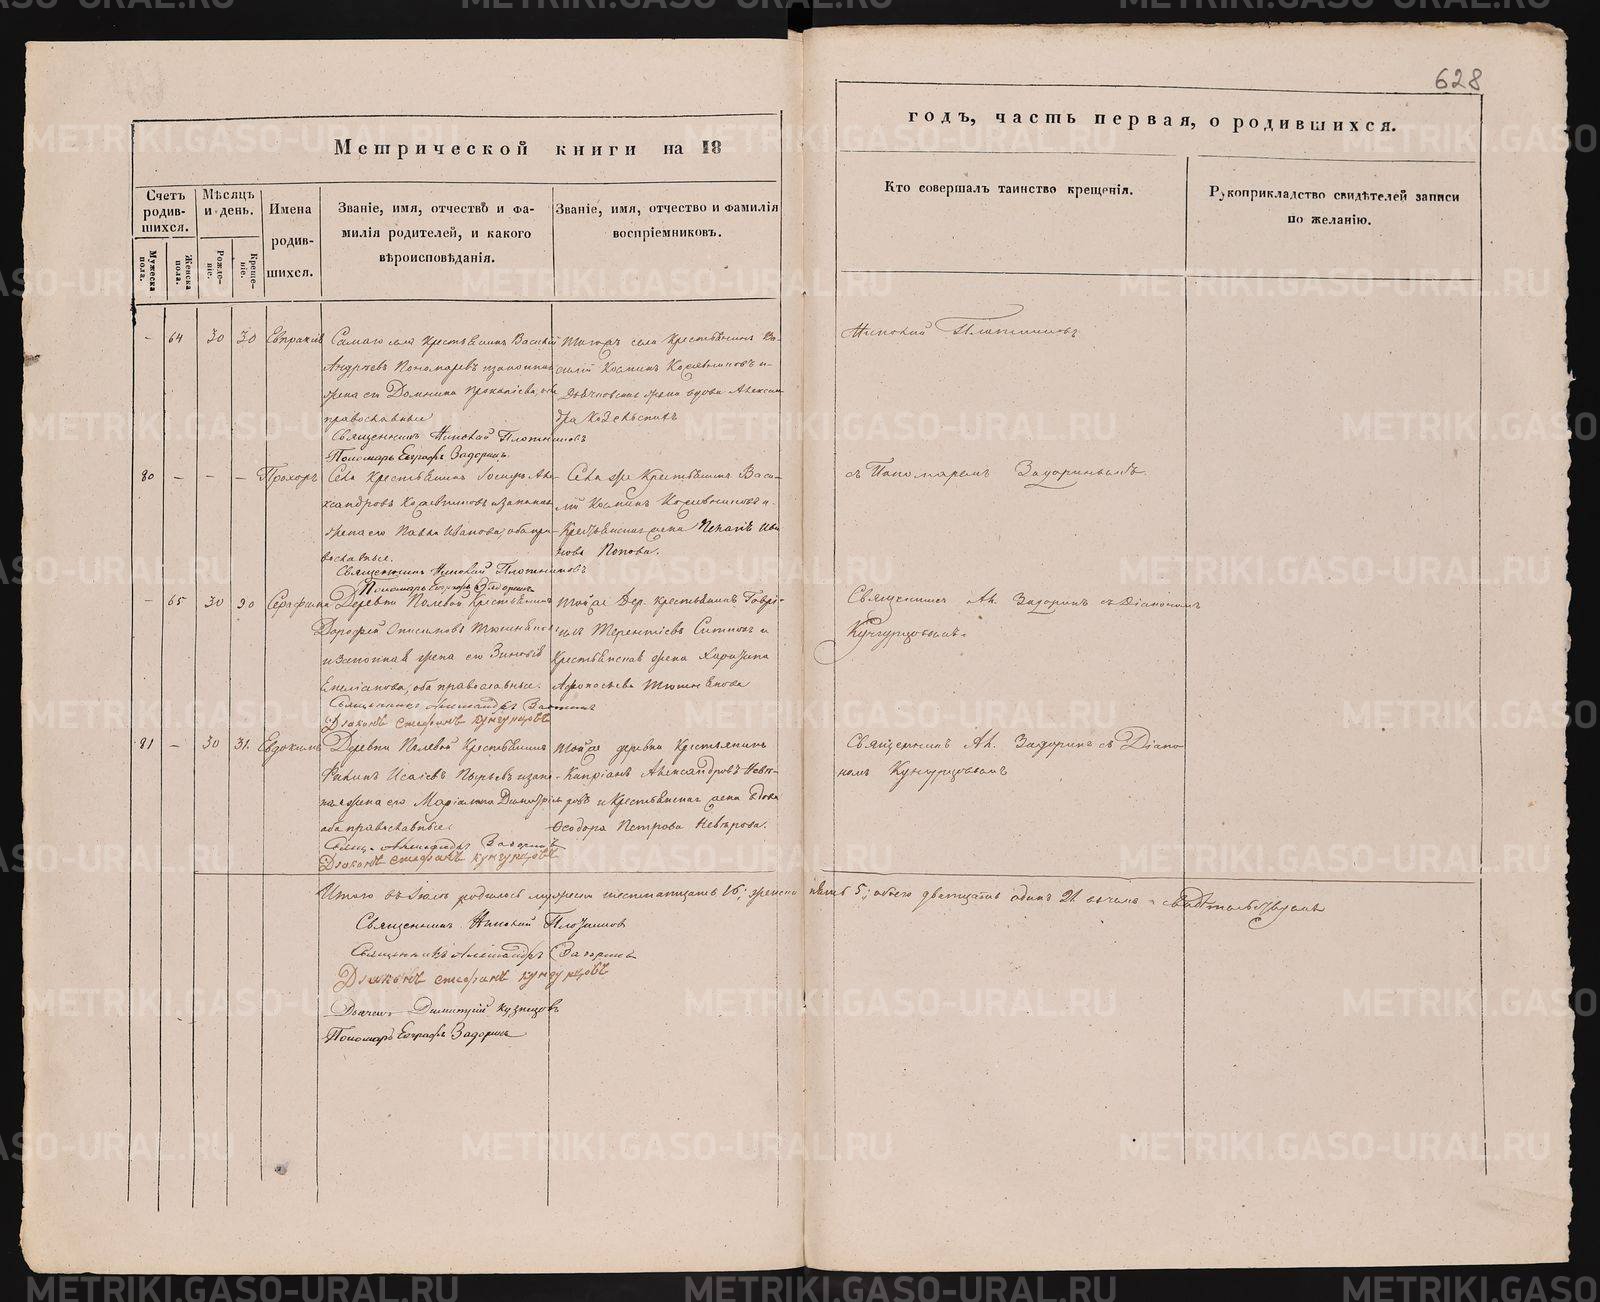 628
Метрической книги на 18
годъ, часть первая, о родившихся.
Счетъ родив-шихся.
Мѣсяцъ и день.
Имена родив-шихся.
Званіе, имя, отчество и фа-
милія родителей, и какого
вѣроисповѣданія.
Званіе, имя, отчество и фамилія
воспріемниковъ.
Кто совершалъ таинство крещенія.
Рукоприкладство свидѣтелей записи
по желанію.
Мужеска пола.
Женска пола.
Рожде-ніе.
Креще-ніе.
- 64 30 30 Евпраксія
Самаго села Крестьянинъ Василій
Андреевъ Пономаревъ и законная
жена его Домнина Прокопіева, оба
православные
Священникъ Николай Плотниковъ
Пономарь Евграфъ Задоринъ.
Тогожъ села Крестьянинъ Ва-
силій Козминъ Кожевниковъ и
жена вдова Александ-
ра
Николай Плотниковъ
80 - - - Прохоръ
Села Крестьянинъ Але-
ксандровъ Кожевниковъ и законная
жена его Павла Иванова, оба пра-
вославные.
Священникъ Николай Плотниковъ
Пономарь Евграфъ Задоринъ
Села же Крестьянинъ Васи-
лій Козминъ Кожевниковъ и
Крестьянская жена Пелагія Ива-
нова Попова.
съ Пономаремъ Задоринымъ.
- 65 30 30 Серафима
Деревни Полевой Крестьянинъ
Дорофей Онисимовъ
и законная жена его Зиновія
Емеліанова, оба православные.
Священникъ Александръ Задоринъ
Діаконъ Стефанъ Кунгурцовъ
Тойже дер. крестьянинъ Гаврі-
илъ Терентіевъ Ситниковъ и
Крестьянская жена Харитина
Афонасьева
Священникъ Ал. Задоринъ съ Діакономъ
Кунгурцовымъ.
81 - 30 31. Евдокимъ
Деревни Полевой Крестьянинъ
Филипъ Исаіевъ Пырьевъ и закон-
ная жена его Маріамна Димитріева
оба православные.
Свящ. Александръ Задоринъ
Діаконъ Стефанъ Кунгурцовъ
Тойже деревни Крестьянинъ
Кипріанъ Александровъ Невѣ-
ровъ и Крестьянская жена вдова
Ѳеодора Петрова Невѣрова.
Священникъ Ал. Задоринъ съ Діако-
номъ Кунгурцовымъ
Итого въ Іюлѣ родилось мужеска шестнатцать 16; женска пять 5; обоего дватцать одинъ 21
Священникъ Николай Плотниковъ
Священникъ Александръ Задоринъ
Діаконъ Стефанъ Кунгурцовъ
Дьячекъ Димитрій Кузнецовъ
Пономарь Евграфъ Задоринъ
METRIKI.GASO-URAL.RU